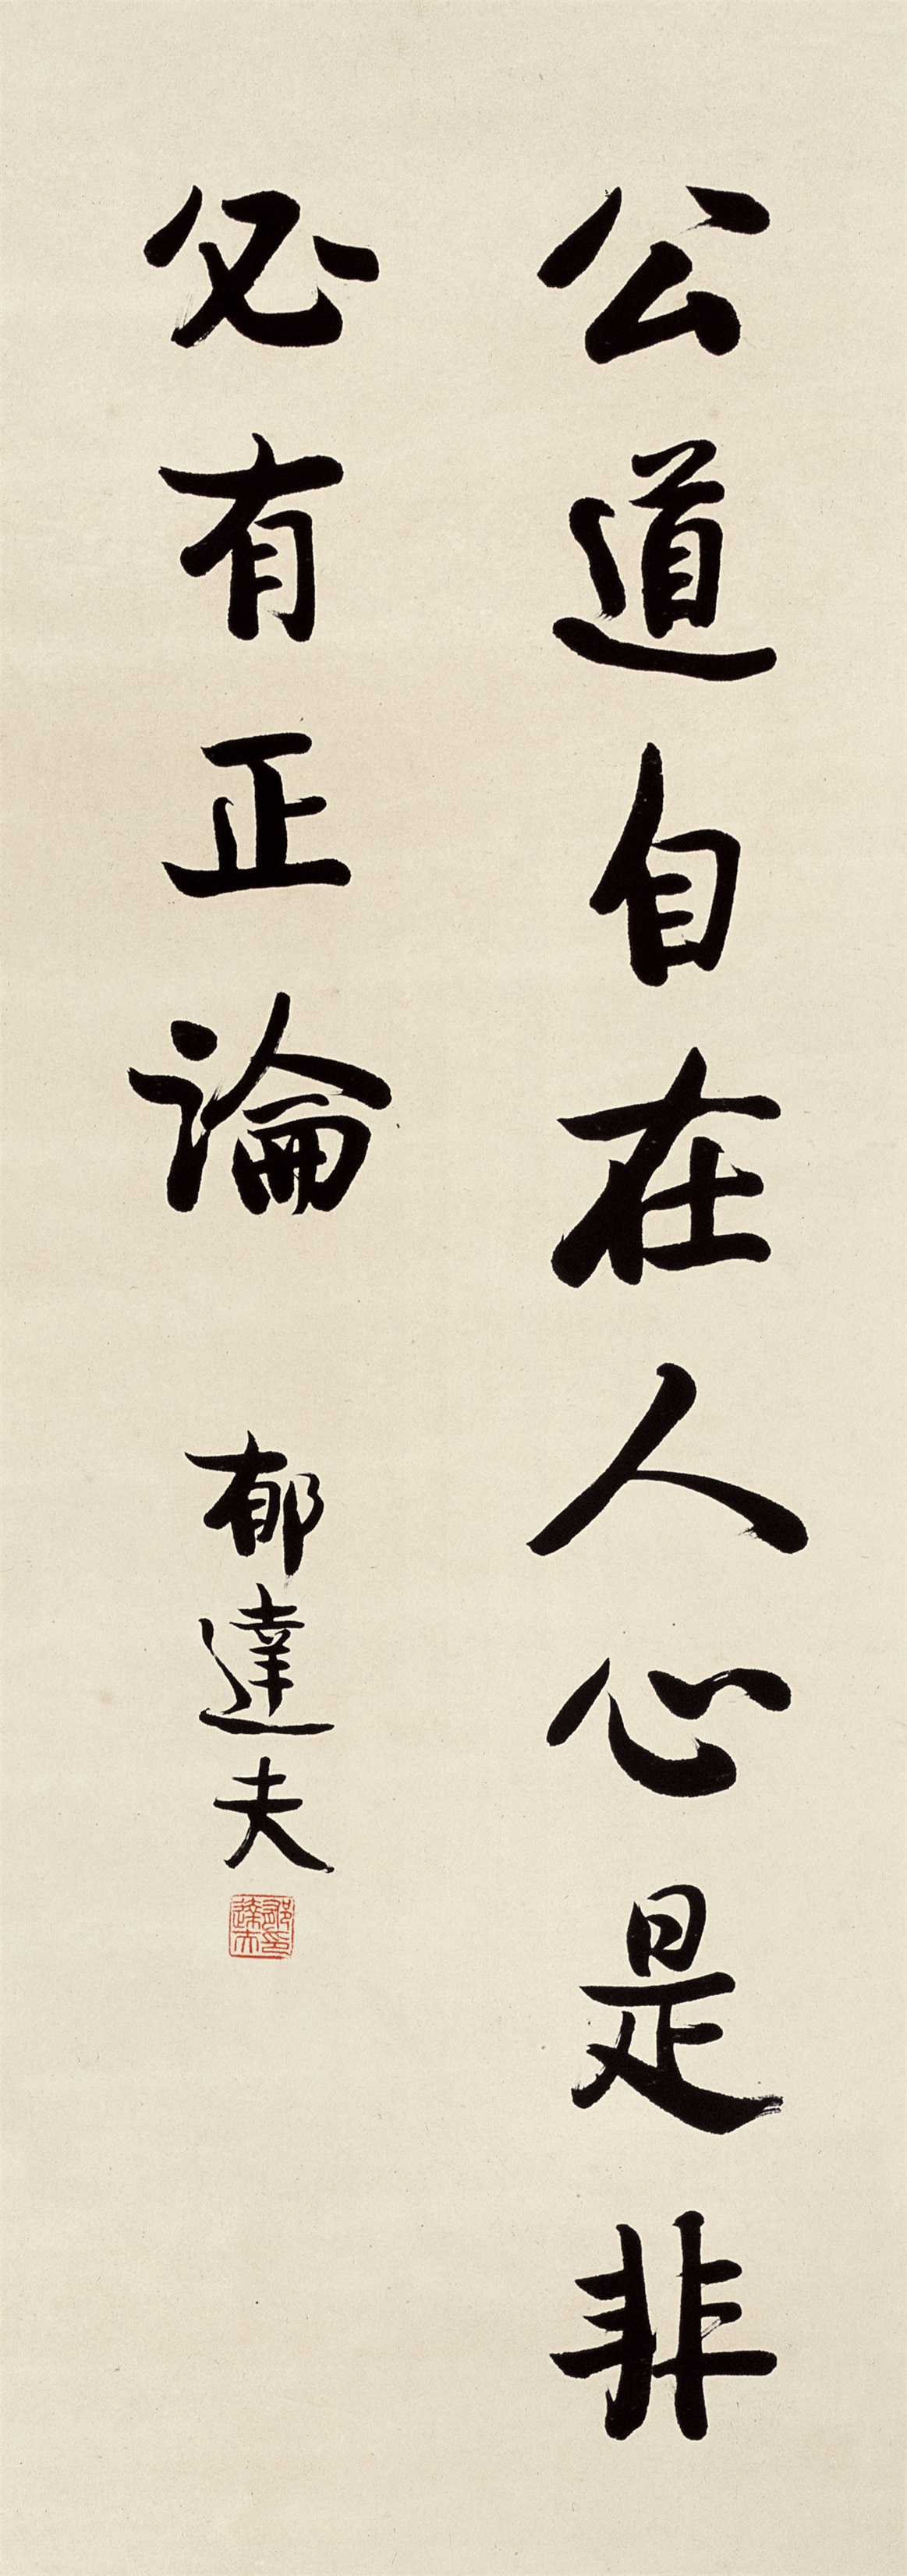 公道自在人心是非
必有正論
郁達夫
郁達夫印